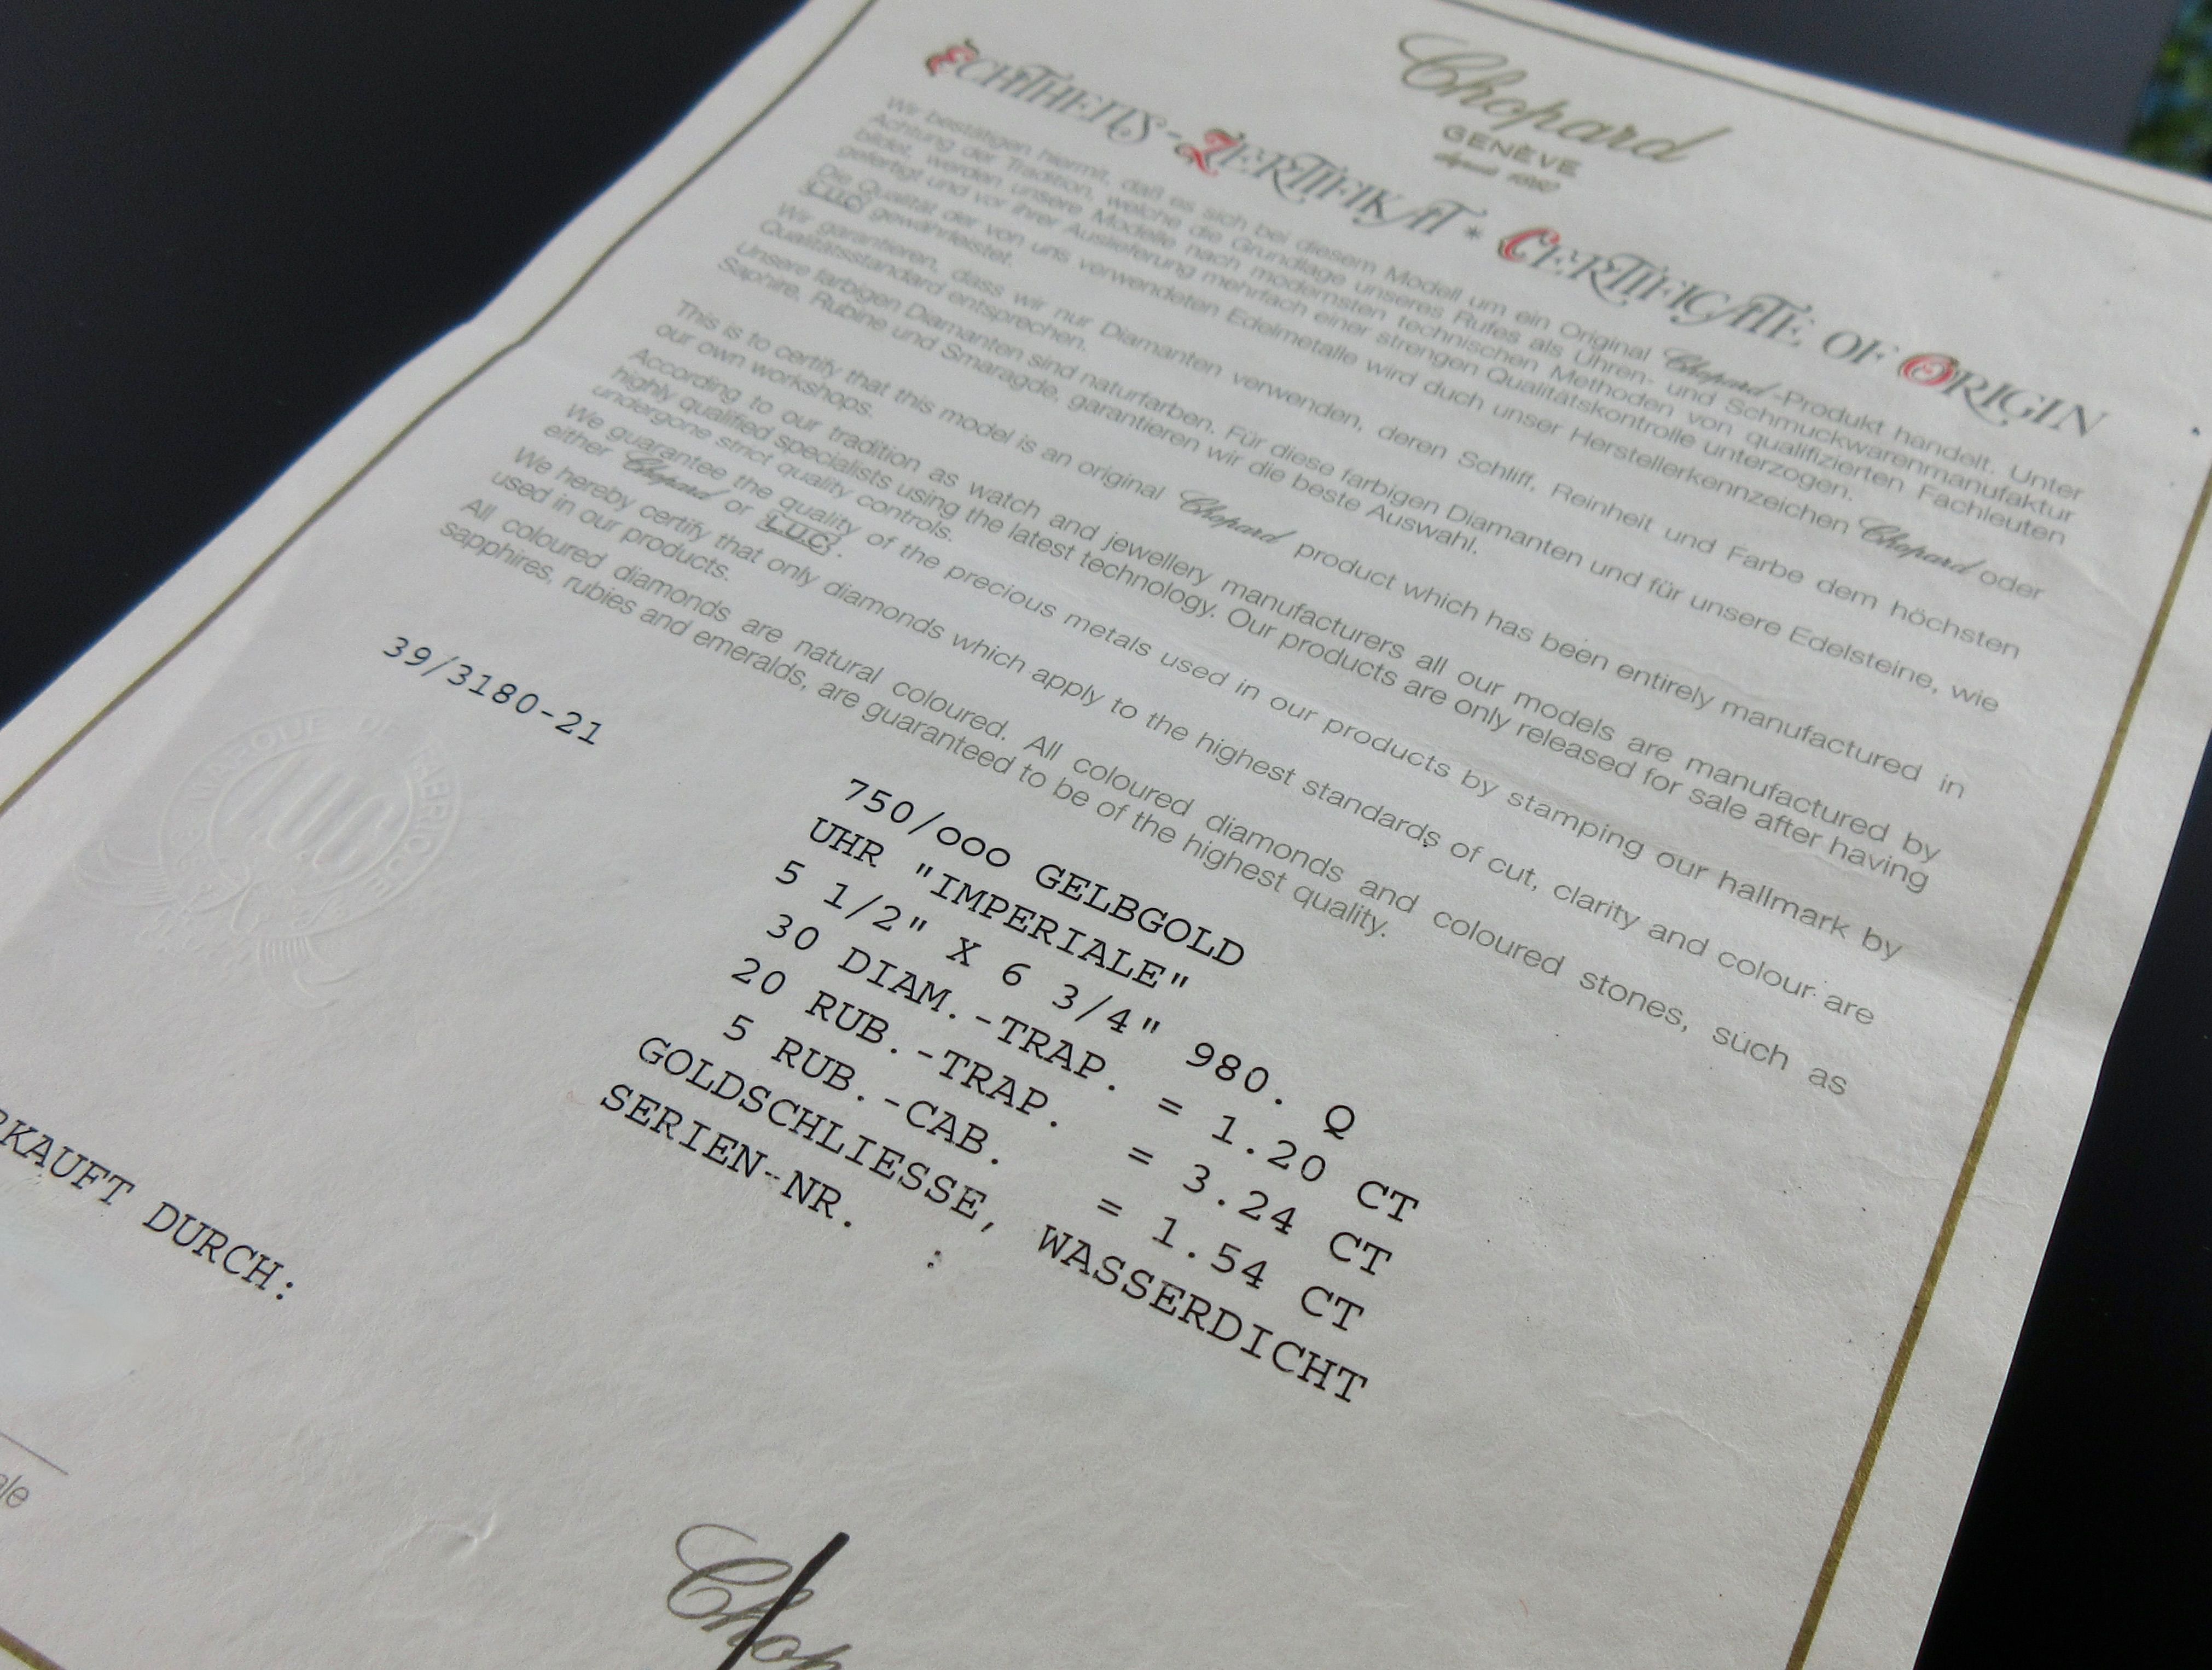 Chopard
GENÈVE
depuis 1860
ECHTHEITS-ZERTIFIKAT * CERTIFICATE OF ORIGIN
Wir bestätigen hiermit, daß es sich bei diesem Modell um ein Original Chopard-Produkt handelt. Unter
Achtung der Tradition, welche die Grundlage unseres Rufes als Uhren- und Schmuckwarenmanufaktur
bildet, werden unsere Modelle nach modernsten technischen Methoden von qualifizierten Fachleuten
gefertigt und vor ihrer Auslieferung mehrfach einer strengen Qualitätskontrolle unterzogen.
Die Qualität der von uns verwendeten Edelmetalle wird duch unser Herstellerkennzeichen Chopard oder
L.U.C gewährleistet.
Wir garantieren, dass wir nur Diamanten verwenden, deren Schliff, Reinheit und Farbe dem höchsten
Qualitätsstandard entsprechen.
Unsere farbigen Diamanten sind naturfarben. Für diese farbigen Diamanten und für unsere Edelsteine, wie
Saphire, Rubine und Smaragde, garantieren wir die beste Auswahl.
This is to certify that this model is an original Chopard product which has been entirely manufactured in
our own workshops.
According to our tradition as watch and jewellery manufacturers all our models are manufactured by
highly qualified specialists using the latest technology. Our products are only released for sale after having
undergone strict quality controls.
We guarantee the quality of the precious metals used in our products by stamping our hallmark by
either Chopard or L.U.C.
We hereby certify that only diamonds which apply to the highest standards of cut, clarity and colour are
used in our products.
All coloured diamonds are natural coloured. All coloured diamonds and coloured stones, such as
sapphires, rubies and emeralds, are guaranteed to be of the highest quality.
39/3180-21
MARQUE DE FABRIQUE
L.U.C
750/ooo GELBGOLD
UHR "IMPERIALE"
5 1/2" X 6 3/4" 980. Q
30 DIAM.-TRAP. = 1.20 CT
20 RUB.-TRAP. = 3.24 CT
5 RUB.-CAB. = 1.54 CT
GOLDSCHLIESSE, WASSERDICHT
SERIEN-NR. :
RKAUFT DURCH:
ale
Chop